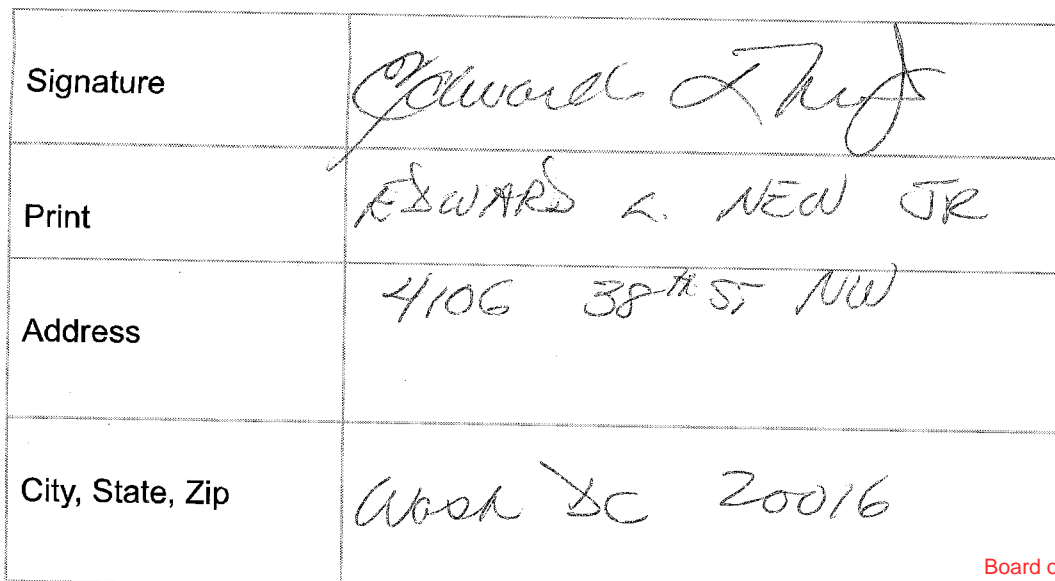 Signature Edward L
Print EDWARD L. NEW JR
Address 4106 38th ST NW
City, State, Zip Wash DC 20016
Board o